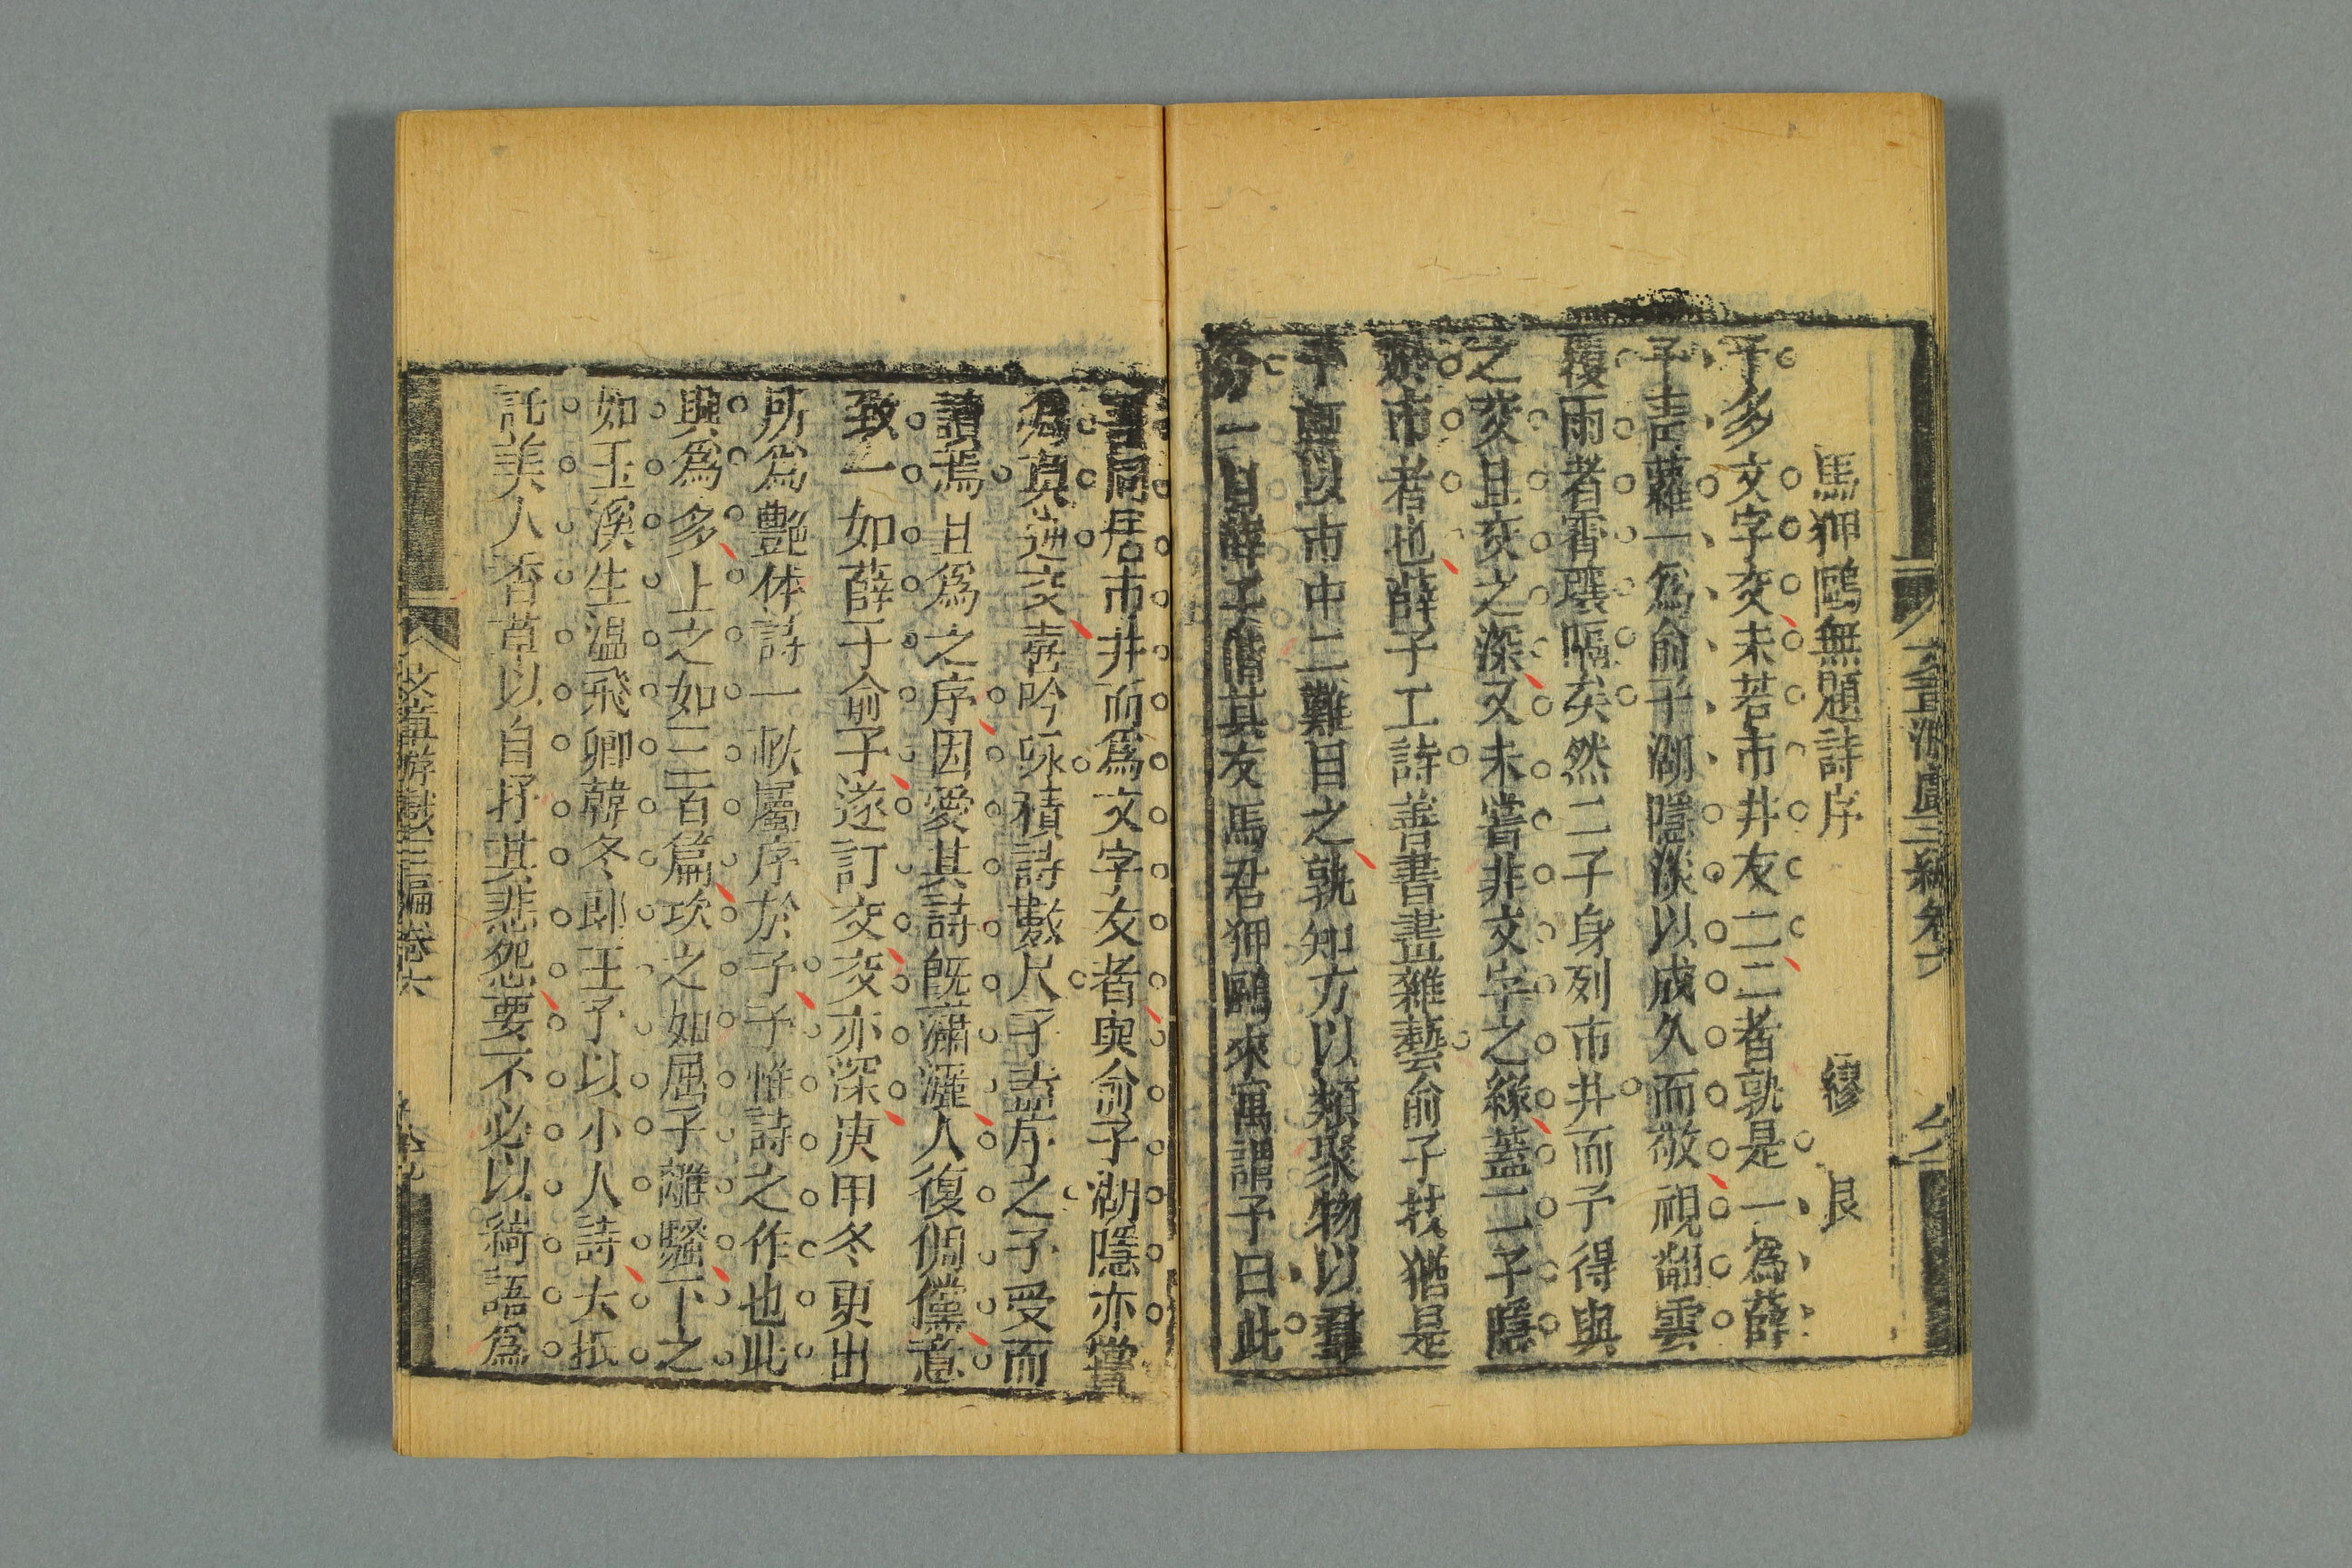 文章游戲三編卷六
馬狎鷗無題詩序 繆 艮
予多文字交未若市井友一二者孰是一為薛
子蘿一為俞子湖隱淡以成久而敬視翻雲
覆雨者霄壤隔矣然二子身列市井而予得與
之交且交之深又未嘗非文字之緣蓋二子隱
於市者也薛子工詩善書畫雜藝俞子技猶是
予烏以市中二難目之孰知方以類聚物以羣
分一日薛子偕其友馬君狎鷗來寓謂予曰此
吾同居市井而為文字友者與俞子湖隱亦嘗
為莫逆交喜吟咏積詩數尺予盍序之予受而
讀焉且為之序因愛其詩既瀟灑人復倜儻意
致一如薛子俞子遂訂交交亦深庚甲冬更出
所為艷体詩一帙屬序於予予惟詩之作也此
與為多上之如三百篇次之如屈子離騷下之
如玉溪生溫飛卿韓冬郎王予以小人詩大抵
託美人香草以自抒其悲怨要不必以綺語為
文章游戲三編卷六